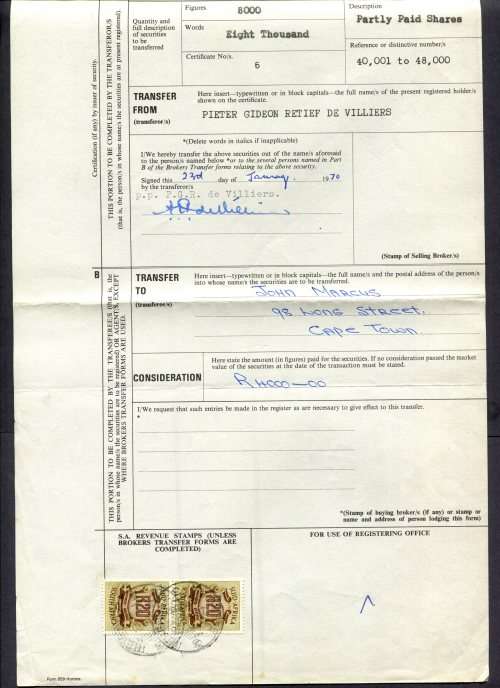 Figures
8000
Description
Partly Paid Shares
Quantity and full description of securities to be transferred
Words
Eight Thousand
Certificate No/s.
6
Reference or distinctive number/s
40,001 to 48,000
Certification (if any) by issuer of security.
THIS PORTION TO BE COMPLETED BY THE TRANSFEROR/S
(that is, the person/s in whose name/s the securities are at present registered).
TRANSFER FROM
(transferor/s)
Here insert—typewritten or in block capitals—the full name/s of the present registered holder/s
shown on the certificate.
PIETER GIDEON RETIEF DE VILLIERS
*(Delete words in italics if inapplicable)
I/We hereby transfer the above securities out of the name/s aforesaid
to the person/s named below *or to the several persons named in Part
B of the Brokers Transfer forms relating to the above security.
Signed this 23rd day of January 1970
by the transferor/s
p.p. P.G.R. de Villiers.
(Stamp of Selling Broker/s)
B
THIS PORTION TO BE COMPLETED BY THE TRANSFEREE/S (that is, the
person/s in whose name/s the securities are to be registered) OR AGENTS, EXCEPT
WHERE BROKERS TRANSFER FORMS ARE USED.
TRANSFER TO
(transferee/s)
Here insert—typewritten or in block capitals—the full name/s and the postal address of the person/s
into whose name/s the securities are to be transferred.
JOHN MARCUS
98 LONG STREET.
CAPE TOWN.
CONSIDERATION
Here state the amount (in figures) paid for the securities. If no consideration passed the market
value of the securities at the date of the transaction must be stated.
R4000—00
I/We request that such entries be made in the register as are necessary to give effect to this transfer.
*
*(Stamp of buying broker/s (if any) or stamp or
name and address of person lodging this form)
S.A. REVENUE STAMPS (UNLESS
BROKERS TRANSFER FORMS ARE
COMPLETED)
FOR USE OF REGISTERING OFFICE
R20
R20